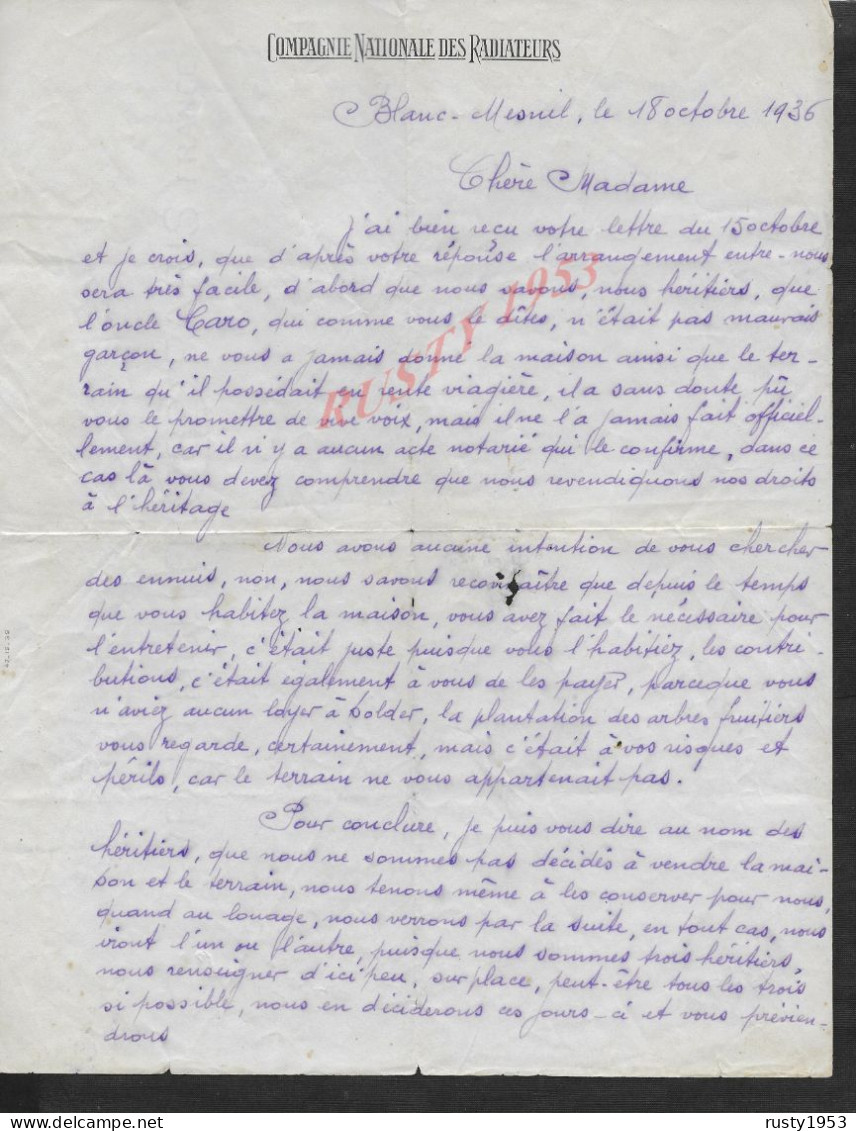 COMPAGNIE NATIONALE DES RADIATEURS
Blanc-Mesnil, le 18 octobre 1936
Chère Madame
J'ai bien reçu votre lettre du 15 octobre
et je crois, que d'après votre réponse l'arrangement entre-nous
sera très facile, d'abord que nous savons, nous héritiers, que
l'oncle Caro, qui comme vous le dîtes, n'était pas mauvais
garçon, ne vous a jamais donné la maison ainsi que le ter-
rain qu'il possédait en rente viagière, il a sans doute pû
vous le promettre de vive voix, mais il ne l'a jamais fait officiel-
lement, car il n'i y a aucun acte notarié qui le confirme, dans ce
cas là vous devez comprendre que nous revendiquons nos droits
à l'héritage
Nous avons aucune intention de vous chercher
des ennuis, non, nous savons reconnaître que depuis le temps
que vous habitez la maison, vous avez fait le nécessaire pour
l'entretenir, c'était juste puisque vous l'habitiez, les contri-
butions, c'était également à vous de les payer, parceque vous
n'aviez aucun loyer à solder, la plantation des arbres fruitiers
vous regarde, certainement, mais c'était à vos risques et
périls, car le terrain ne vous appartenait pas.
Pour conclure, je puis vous dire au nom des
héritiers, que nous ne sommes pas décidés à vendre la mai-
son et le terrain, nous tenons même à les conserver pour nous,
quand au louage, nous verrons par la suite, en tout cas, nous
iront l'un ou l'autre, puisque nous sommes trois héritiers,
nous renseigner d'ici peu, sur place, peut-être tous les trois
si possible, nous en déciderons ces jours-ci et vous prévien-
drons
RUSTY 1953
rusty1953